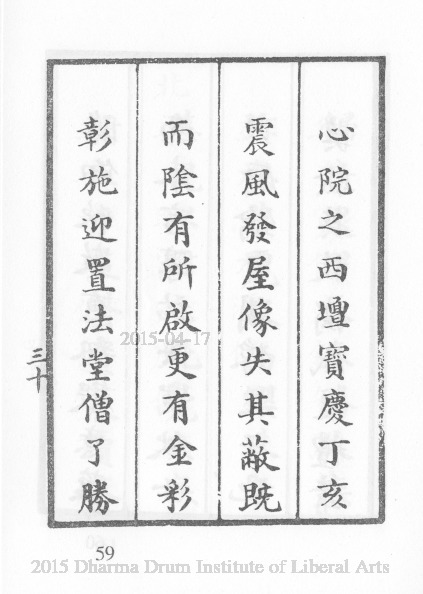 心院之西壇寶慶丁亥
震風發屋像失其蔽既
而陰有所啟更有金彩
彰施迎置法堂僧了勝
三十
2015-04-17
59
2015 Dharma Drum Institute of Liberal Arts